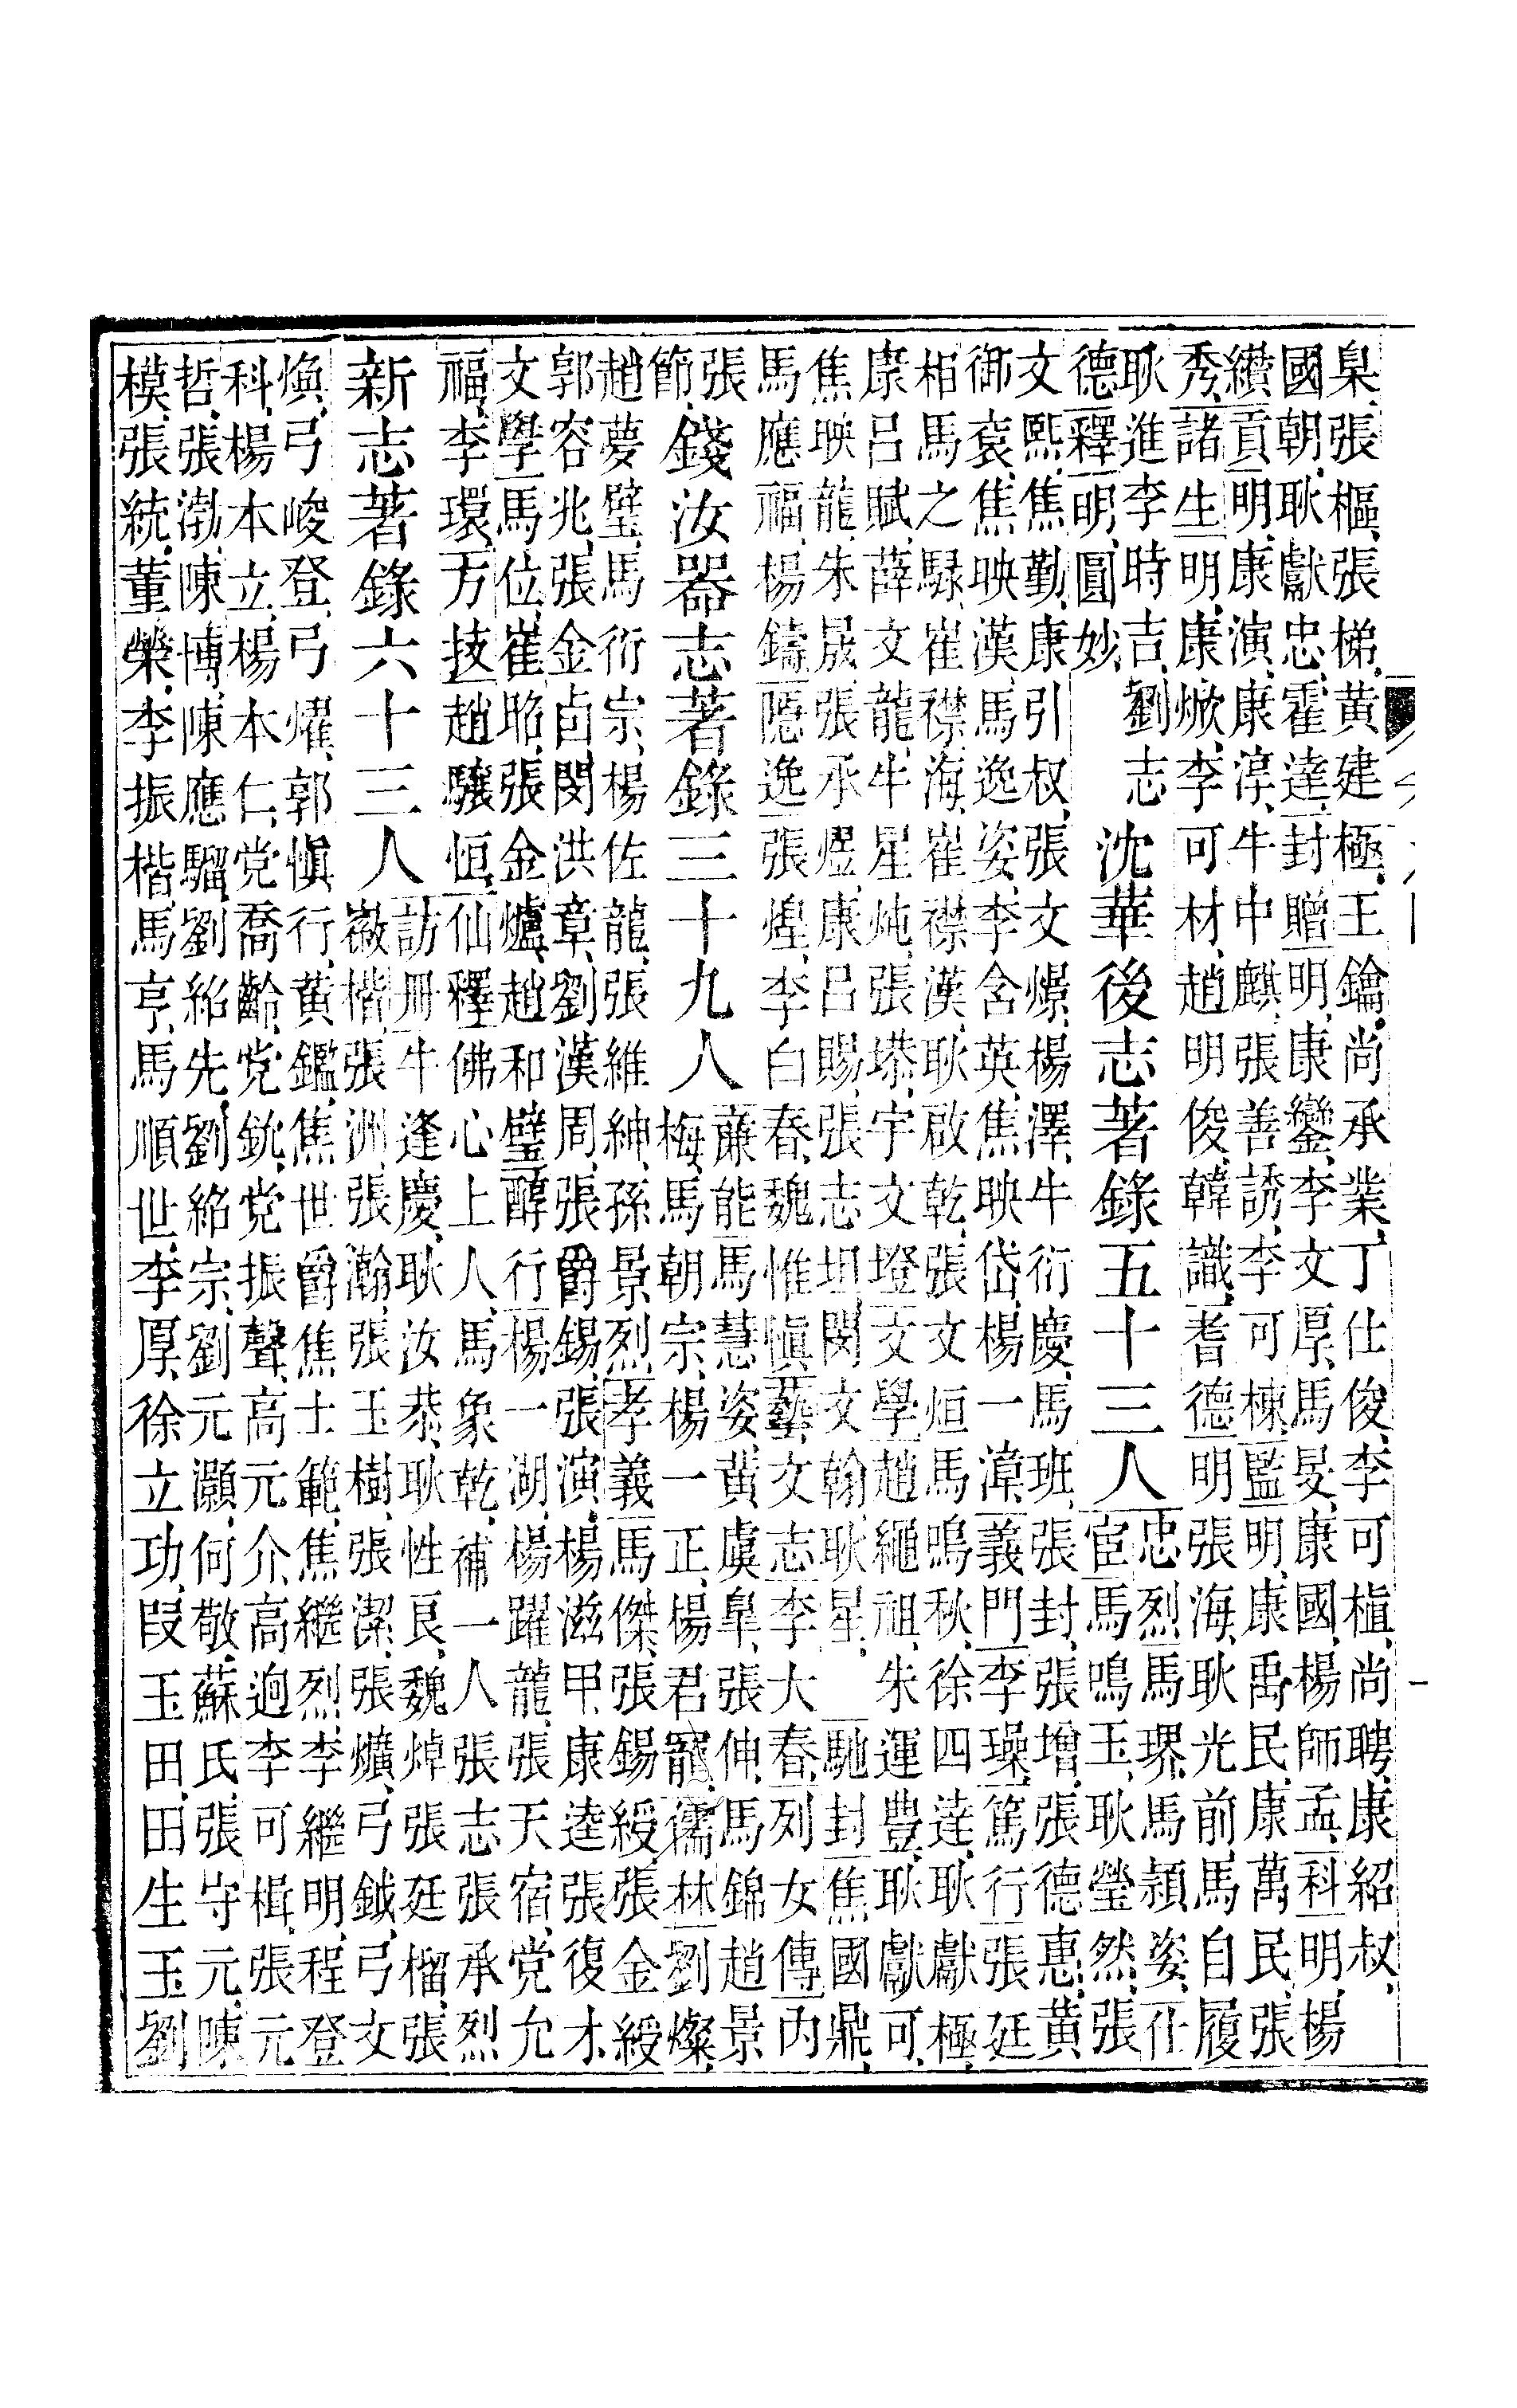 臬張樞張梯黃建極王鑰尚承業丁仕俊李可植尚聘康紹叔
國朝耿獻忠霍達封贈明康鑾李文厚馬旻康國楊師孟科明楊
纘貢明康演康淳牛中麒張善誘李可棟監明康禹民康萬民張
秀諸生明康焮李可材趙明俊韓識耆德明張海耿光前馬自履
耿進李時吉劉志
德釋明圓妙
沈華後志著錄五十三人
忠烈馬琾馬頴姿仕
宦馬鳴玉耿瑩然張
文熙焦勤康引叔張文燝楊澤牛衍慶馬班張封張增張德惠黃
御衮焦映漢馬逸姿李含英焦映岱楊一漳義門李璪篤行張廷
相馬之騄崔襟海崔襟漢耿啟乾張文烜馬鳴秋徐四達耿獻極
康呂賦薛文龍牛星炖張塨宇文璒文學趙繩祖朱運豊耿獻可
焦映龍朱晟張承煜康呂賜張志坦閔文翰耿星馳封焦國鼎
馬應福楊鑄隠逸張煌李白春魏惟愼藝文志李大春列女傳內
張
節
錢汝器志著錄三十九人
亷能馬慧姿黃虞臯張伸馬錦趙景
梅馬朝宗楊一正楊君寵儒林劉燦
趙夢璧馬衍宗楊佐龍張維紳孫景烈孝義馬傑張錫綬張金綬
郭容兆張金卣閔洪章劉漢周張爵錫張演楊滋甲康逵張復才
文學馬位崔昭張金爐趙和璧醇行楊一湖楊躍龍張天宿党允
福李環方技趙驤恒仙釋佛心上人馬象乾補一人張志張承烈
新志著錄六十三人
訪冊牛逢慶耿汝恭耿性良魏焯張廷榴張
嶶楷張洲張瀚張玉樹張潔張爌弓鉞弓文
煥弓峻登弓燿郭愼行黃鑑焦世爵焦士範焦繼烈李繼明程登
科楊本立楊本仁党喬齡党銃党振聲高元介高迥李可楫張元
哲張渤陳博陳應騮劉紹先劉紹宗劉元灝何敬蘇氏張守元陳
模張統董榮李振楷馬亨馬順世李厚徐立功段玉田田生玉劉